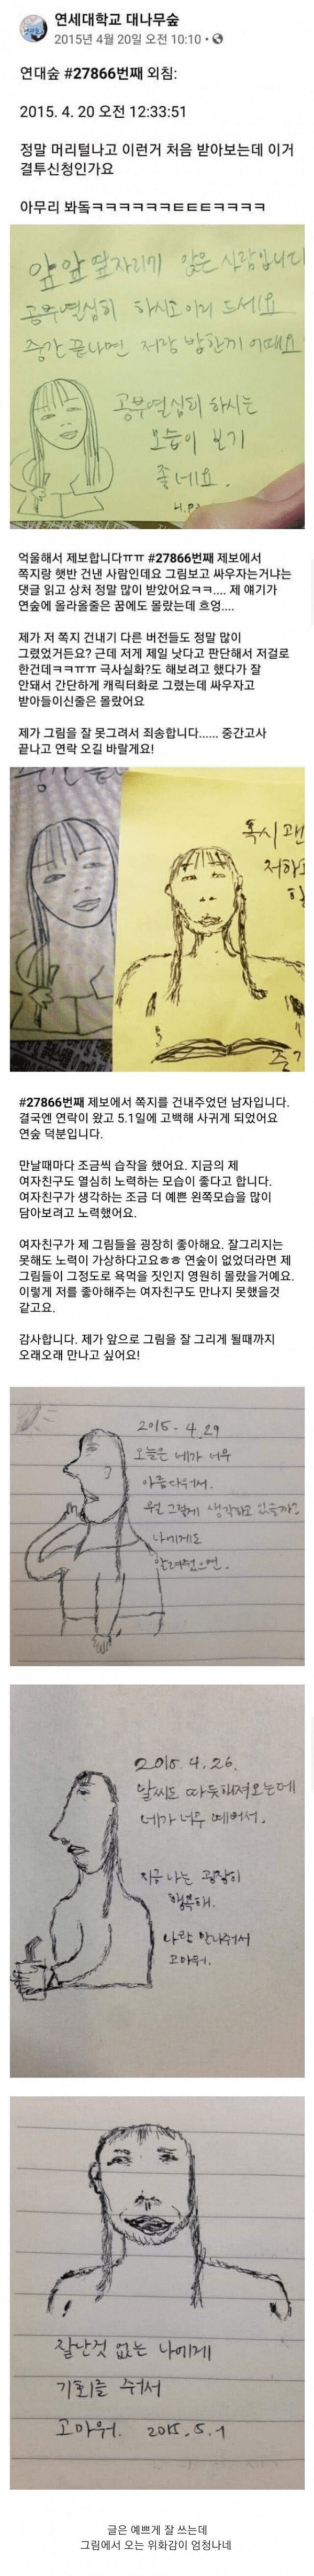 연세대학교 대나무숲
2015년 4월 20일 오전 10:10 •
연대숲 #27866번째 외침:
2015. 4. 20 오전 12:33:51
정말 머리털나고 이런거 처음 받아보는데 이거
결투신청인가요
아무리 봐돜ㅋㅋㅋㅋㅋㅋㅌㅌㅌㅌㅋㅋㅋㅋ
앞앞 옆자리에 앉은 사람입니다
공부열심히 하시고 이거 드세요
중간 끝나면 저랑 밥한끼 어때요
공부열심히 하시는
모습이 보기
좋네요.
H.P)
억울해서 제보합니다ㅠㅠ #27866번째 제보에서
쪽지랑 햇반 건낸 사람인데요 그림보고 싸우자는거냐는
댓글 읽고 상처 정말 많이 받았어요ㅋㅋ.... 제 얘기가
연숲에 올라올줄은 꿈에도 몰랐는데 흐엉....
제가 저 쪽지 건내기 다른 버전들도 정말 많이
그렸었거든요? 근데 저게 제일 낫다고 판단해서 저걸로
한건데ㅋㅋㅠㅠ 극사실화?도 해보려고 했다가 잘
안돼서 간단하게 캐릭터화로 그렸는데 싸우자고
받아들이신줄은 몰랐어요
제가 그림을 잘 못그려서 죄송합니다...... 중간고사
끝나고 연락 오길 바랄게요!
혹시 괜
저하고
#27866번째 제보에서 쪽지를 건내주었던 남자입니다.
결국엔 연락이 왔고 5.1일에 고백해 사귀게 되었어요
연숲 덕분입니다.
만날때마다 조금씩 습작을 했어요. 지금의 제
여자친구도 열심히 노력하는 모습이 좋다고 합니다.
여자친구가 생각하는 조금 더 예쁜 왼쪽모습을 많이
담아보려고 노력했어요.
여자친구가 제 그림들을 굉장히 좋아해요. 잘그리지는
못해도 노력이 가상하다고요ㅎㅎ 연숲이 없었더라면 제
그림들이 그정도로 욕먹을 짓인지 영원히 몰랐을거예요.
이렇게 저를 좋아해주는 여자친구도 만나지 못했을것
같고요.
감사합니다. 제가 앞으로 그림을 잘 그리게 될때까지
오래오래 만나고 싶어요!
2015. 4. 29
오늘은 네가 너무
아름다워서.
뭘 그렇게 생각하고 있을까?
나에게도
알려줬으면.
2015. 4. 26.
날씨도 따듯해져오는데
네가 너무 예뻐서.
지금 나는 굉장히
행복해.
나랑 만나줘서
고마워.
잘난것 없는 나에게
기회를 줘서
고마워. 2015. 5. 1
글은 예쁘게 잘 쓰는데
그림에서 오는 위화감이 엄청나네